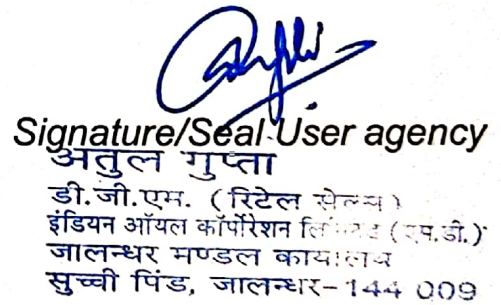 Signature/Seal User agency
अतुल गुप्ता
डी.जी.एम. (रिटेल सेल्स)
इंडियन ऑयल कॉर्पोरेशन लि (एम.डी.)
जालन्धर मण्डल कार्यालय
सुच्ची पिंड, जालन्धर-144 009